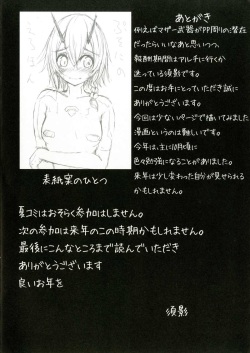 あとがき
例えばマザー武器がPP周りの潜在
だったらいいなあと思いつつ、
報酬期間はアルチに行くか
迷っている須影です。
この度はお手にとっていただき誠に
ありがとうございます。
今回は少ないページで描いてみました。
漫画というのは難しいです。
今年は、主に10月頃に
色々勉強になることがありました。
来年は少し変わった自分が見せられる
かもしれません。
表紙案のひとつ
夏コミはおそらく参加はしません。
次の参加は来年のこの時期かもしれません。
最後にこんなところまで読んでいただき
ありがとうございます
良いお年を
須影